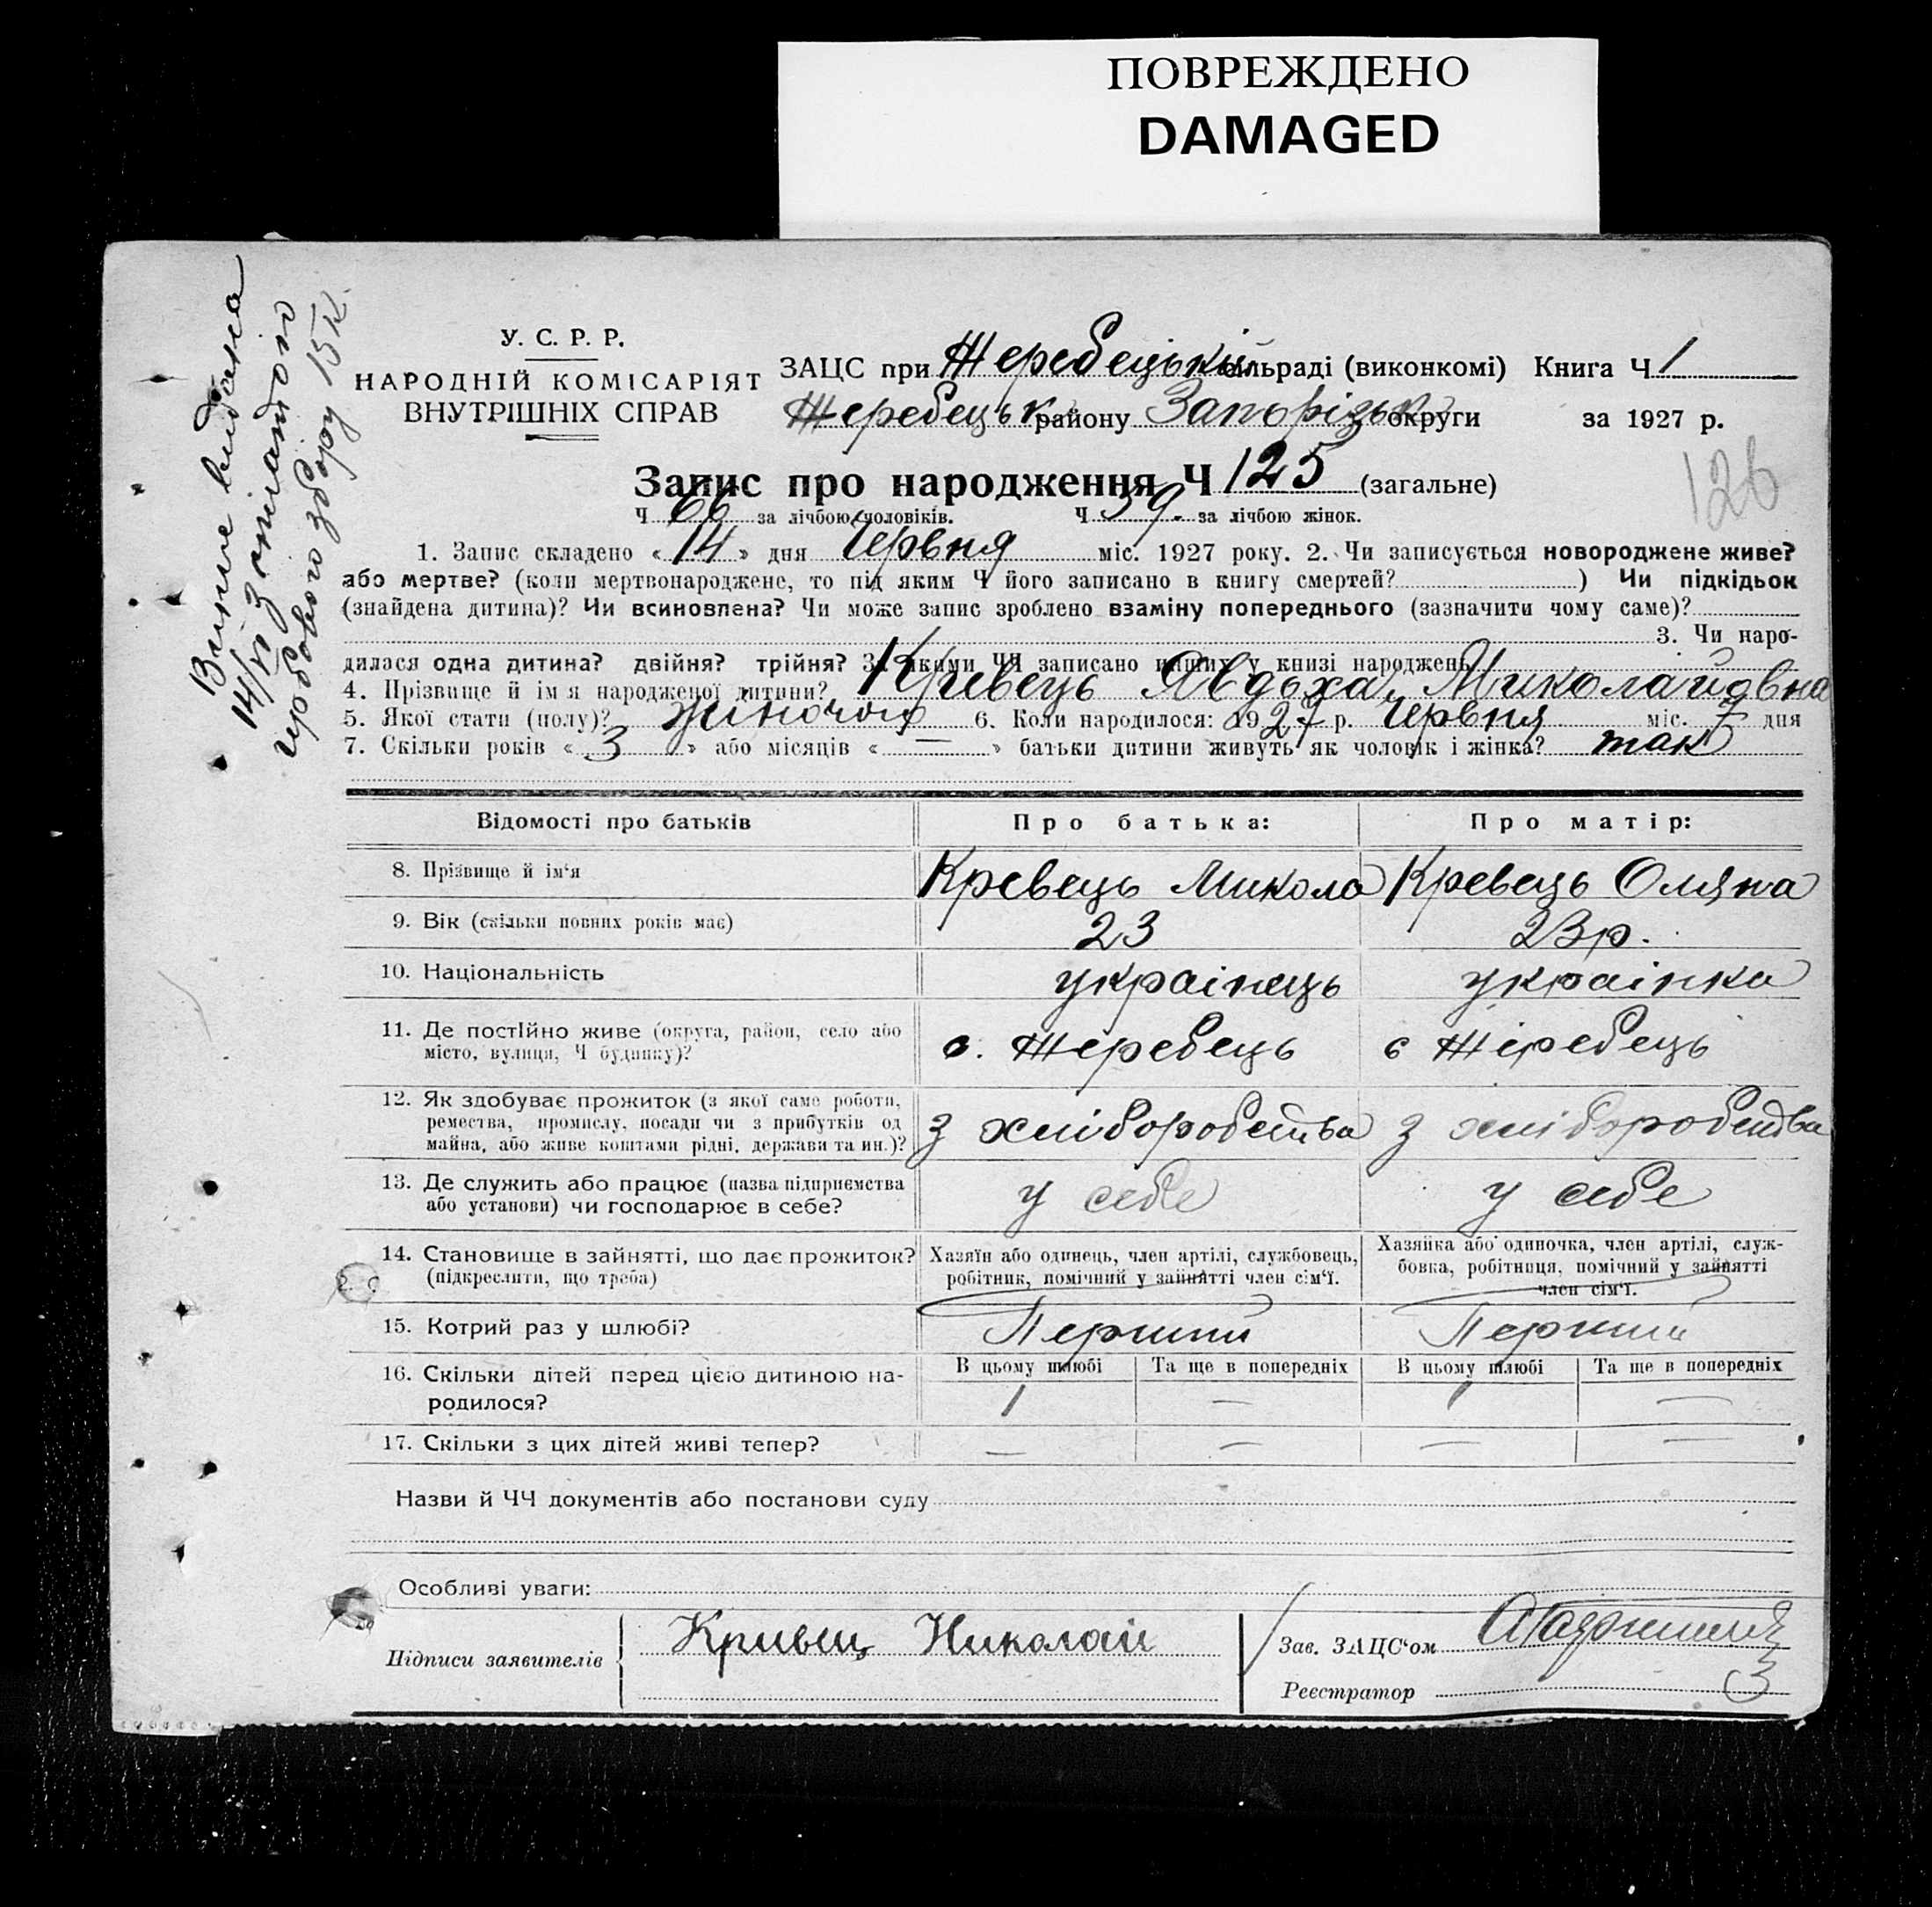 ПОВРЕЖДЕНО
DAMAGED
Випис видана
14/VI з оплатою
гербового збору 15 к.
У. С. Р. Р.
НАРОДНІЙ КОМІСАРІЯТ
ВНУТРІШНІХ СПРАВ
ЗАЦС при Жеребецькій сільраді (виконкомі) Книга Ч 1
Жеребецьк району Запорізьк округи за 1927 р.
126
Запис про народження Ч 125 (загальне)
Ч 66 за лічбою чоловіків. Ч 59. за лічбою жінок.
1. Запис складено « 14 » дня Червня міс. 1927 року. 2. Чи записується новороджене живе?
або мертве? (коли мертвонароджене, то під яким Ч його записано в книгу смертей? ) Чи підкідьок
(знайдена дитина)? Чи всиновлена? Чи може запис зроблено взаміну попереднього (зазначити чому саме)?
3. Чи наро-
дилася одна дитина? двійня? трійня? З якими ЧЧ записано инших у книзі народжень
4. Прізвище й ім'я народженої дитини? Кревець Явдоха Миколайовна
5. Якої стати (полу)? жіночої 6. Коли народилося: 1927 р. Червня міс. 7 дня
7. Скільки років « 3 » або місяців « — » батьки дитини живуть як чоловік і жінка? так
Відомості про батьків Про батька: Про матір:
8. Прізвище й ім'я Кревець Микола Кревець Оляна
9. Вік (скільки повних років має) 23 23 р.
10. Національність украінець украінка
11. Де постійно живе (округа, район, село або
місто, вулиця, Ч будинку)? с. Жеребець с Жеребець
12. Як здобуває прожиток (з якої саме роботи,
ремества, промислу, посади чи з прибутків од
майна, або живе коштами рідні, держави та ин.)? з хліборобства з хліборобства
13. Де служить або працює (назва підприємства
або установи) чи господарює в себе? у себе у себе
14. Становище в зайнятті, що дає прожиток?
(підкреслити, що треба)
Хазяїн або одинець, член артілі, службовець,
робітник, помічний у зайнятті член сім'ї.
Хазяйка або одиночка, член артілі, служ-
бовка, робітниця, помічний у зайнятті
член сім'ї.
15. Котрий раз у шлюбі? Перший Перший
16. Скільки дітей перед цією дитиною на-
родилося?
В цьому шлюбі Та ще в попередніх В цьому шлюбі Та ще в попередніх
1 — 1 —
17. Скільки з цих дітей живі тепер? — — — —
Назви й ЧЧ документів або постанови суду
Особливі уваги:
Підписи заявителів Кривец Николай
Зав. ЗАЦС'ом
Реєстратор